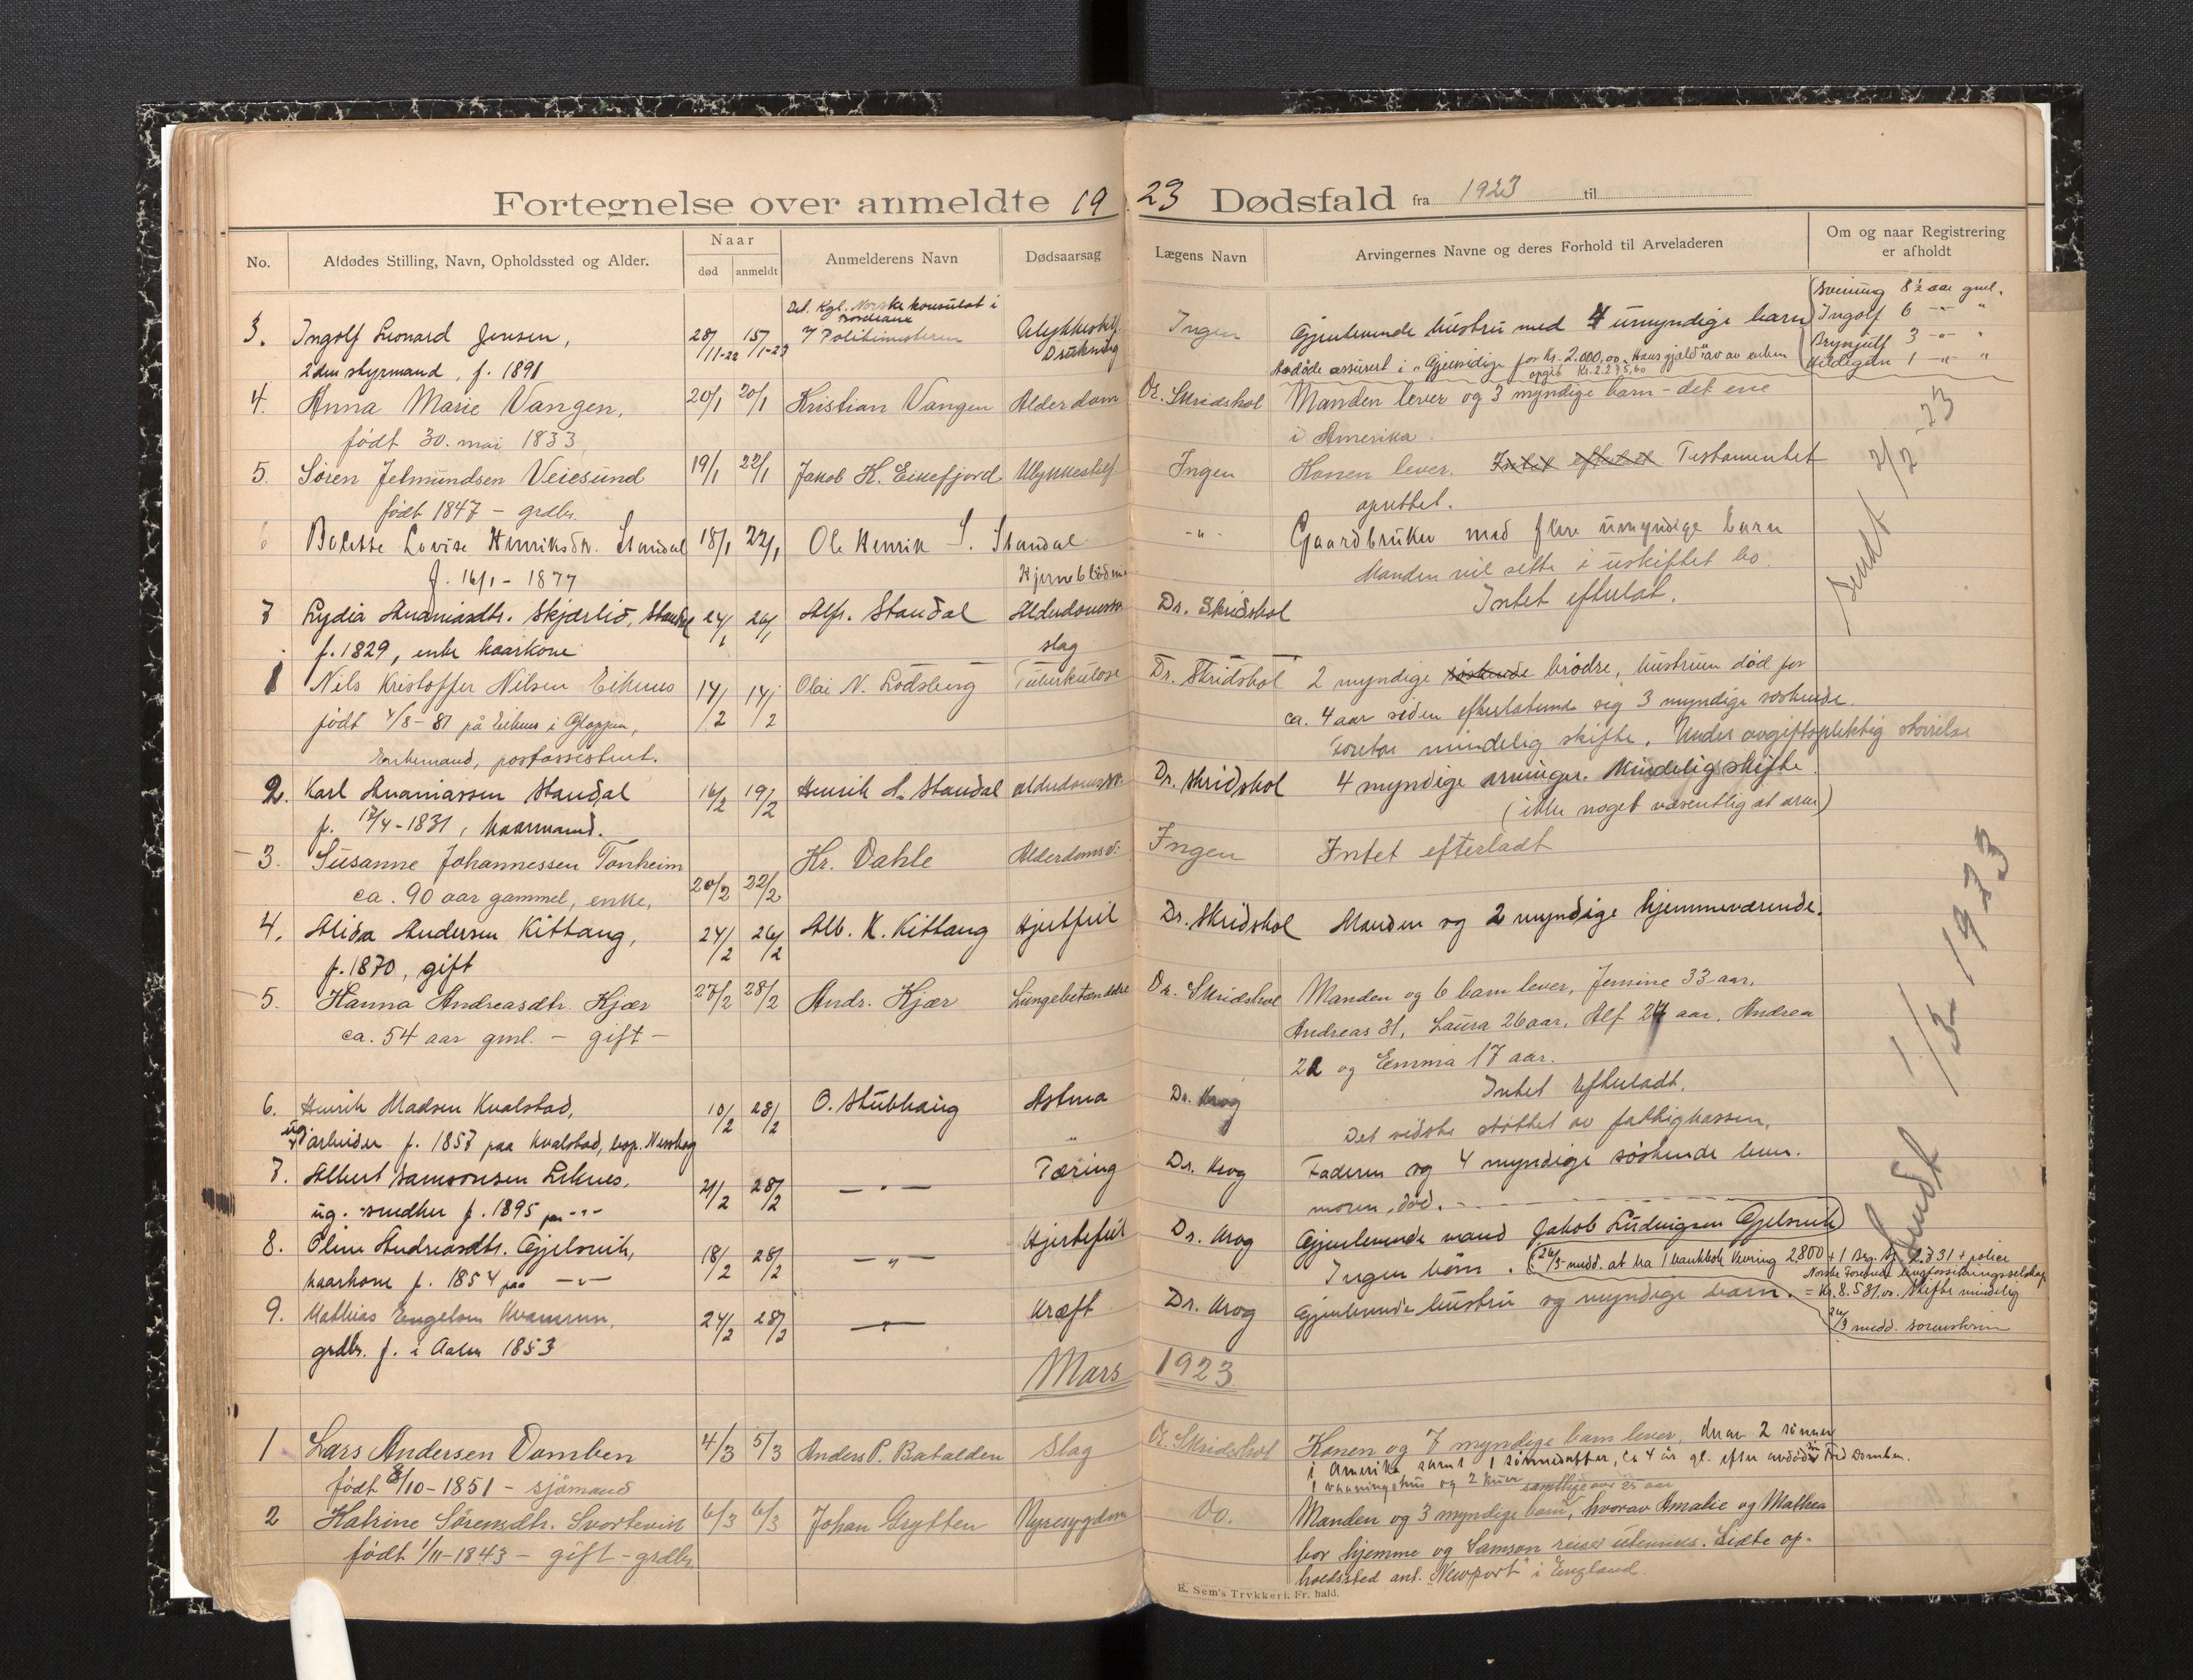 Fortegnelse over anmeldte 1923 Dødsfald fra 1923 til
No.
Afdødes Stilling, Navn, Opholdssted og Alder.
Naar
død anmeldt
Anmelderens Navn
Dødsaarsag
Lægens Navn
Arvingernes Navne og deres Forhold til Arveladeren
Om og naar Registrering
er afholdt
Det Kgl. Norske konsulat i
Bordeaux
3. Ingolf Leonard Jensen, 28/11-22 15/1-23 Politimesteren Ulykkestilf. Ingen Gjenlevende hustru med 4 umyndige barn
Drukning
2den styrmand, f. 1891
Avdøde assurert i "Gjensidige" for Kr. 2.000,00. Hans gjæld
8½ aar gml.
Ingolf 6 -"- "
Brynjulf 3 -"- "
1 -"- "
4. Anna Marie Vangen, 20/1 20/1 Kristian Vangen Alderdom Dr. Skridshol Manden lever og 3 myndige barn - det ene
født 30. mai 1833 i Amerika.
5. Søren Jetmundsen Veiesund 19/1 22/1 Jakob H. Eikefjord Ulykkestilf Ingen Konen lever. Intet efterlat Testamentet
født 1847 - grdbr. oprettet.
6 Bolette Lovise Henriksdtr. Standal 18/1 22/1 Ole Henrik S. Standal -"- Gaardbruker med flere umyndige barn
f. 16/1 - 1877 Hjerneblødning Manden vil sitte i uskiftet bo.
7 Lydia Ananiasdtr. Skjærlid, Standal 24/1 26/1 Alfr. Standal Alderdomssv. Dr. Skridshol Intet efterlat.
f. 1829, enke kaarkone slag
Sendt 2/2-23
1 Nils Kristoffer Nilsen Eikenes 14/2 14/2 Olai N. Lodsberg Tuberkulose Dr. Skridshol 2 myndige søskende brødre, hustruen død for
født 4/8-81 på Eikenes i Gloppen, ca. 4 aar siden efterlatende sig 3 myndige søskende.
Enkemand, postassistent. Foretar mindelig skifte. Under avgiftspliktig størrelse
2. Karl Ananiassen Standal 16/2 19/2 Henrik A. Standal alderdomssv. Dr. Skridshol 4 myndige arvinger. Mindelig skifte.
f. 17/4-1831, kaarmand. (ikke noget væsentlig at arve)
3. Susanne Johannessen Tonheim 20/2 22/2 Kr. Dahle Alderdomsv. Ingen Intet efterladt
ca. 90 aar gammel, enke,
4. Alida Andersen Kittang, 24/2 26/2 Alb. K. Kittang Hjertfeil Dr. Skridshol Manden og 2 myndige hjemmeværende.
f. 1870, gift
5. Hanna Andreasdtr. Kjær 27/2 28/2 Andr. Kjær Lungebetændelse Dr. Skridshol Manden og 6 barn lever, Jemine 33 aar,
ca. 54 aar gml. - gift - Andreas 31, Laura 26 aar, Alf 24 aar, Andrea
22 og Emma 17 aar.
6. Henrik Madsen Kvalstad, 10/2 28/2 O. Stubhaug Astma Dr. Krog Intet Efterladt.
ug. arbeider f. 1857 paa Kvalstad, Det sidste støttet av fattigkassen.
7. Albert Samsonsen Leknes, 21/2 28/2 -"- Tæring Dr. Krog Faderen og 4 myndige søskende lever.
ug. snedker f. 1895 paa -"- moren død.
8. Oline Andreasdtr. Gjelsvik, 18/2 28/2 -"- Hjertefeil Dr. Krog Gjenlevende mand Jakob Ludvigsen Gjelsvik
kaarkone f. 1854 paa -"- Ingen børn. (26/3 medd. at ha 1 bankbok 2800
= Kr. 8.581,00. Skifte mindelig
26/3 medd. sorenskriveren
9. Mathias Engelsen Kvammen, 24/2 28/2 -"- Kræft Dr. Krog Gjenlevende hustru og myndige barn.
grdbr. f. i Aalen 1853
Sendt 1/3-1923
Mars 1923
1 Lars Andersen Domben 4/3 5/3 Anders P. Batalden Slag Dr. Skridshol Konen og 7 myndige barn lever, derav 2 sønner
født 8/10-1851 - sjømand i Amerika samt 1 sønnedatter, ca 4 år gl. efter avdøde søn Domben.
1 vaaningshus og 2 kuer samtlige over 25 aar
2 Katrine Sørensdtr. Svortevik 6/3 6/3 Johan Grytten Nyresygdom Do. Manden og 3 myndige barn, hvorav Amalie og Mathea
født 1/11-1843 - gift - grdbr. bor hjemme og Samson reiser utenriks. Sidste op-
holdssted ant. "Newport" i England.
E. Sem's Trykkeri, Fr. hald.